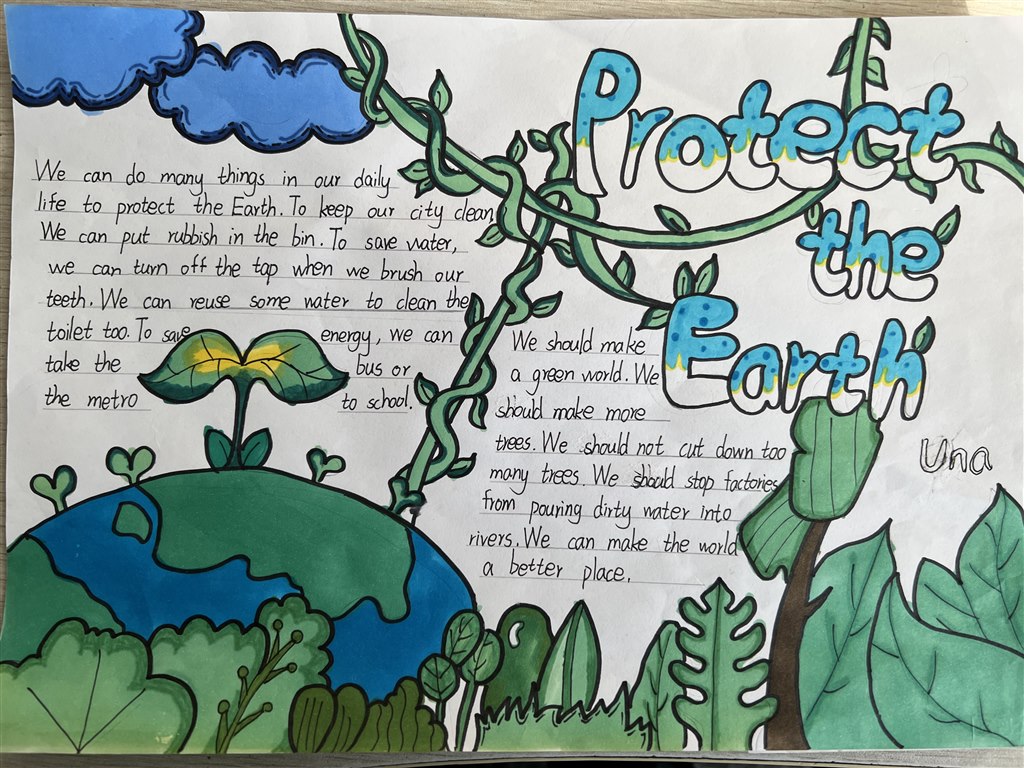 Protect
the
Earth
Una
We can do many things in our daily
life to protect the Earth. To keep our city clean,
We can put rubbish in the bin. To save water,
we can turn off the tap when we brush our
teeth. We can reuse some water to clean the
toilet too. To save energy, we can
take the bus or
the metro to school.
We should make
a green world. We
should make more
trees. We should not cut down too
many trees. We should stop factories
from pouring dirty water into
rivers. We can make the world
a better place.